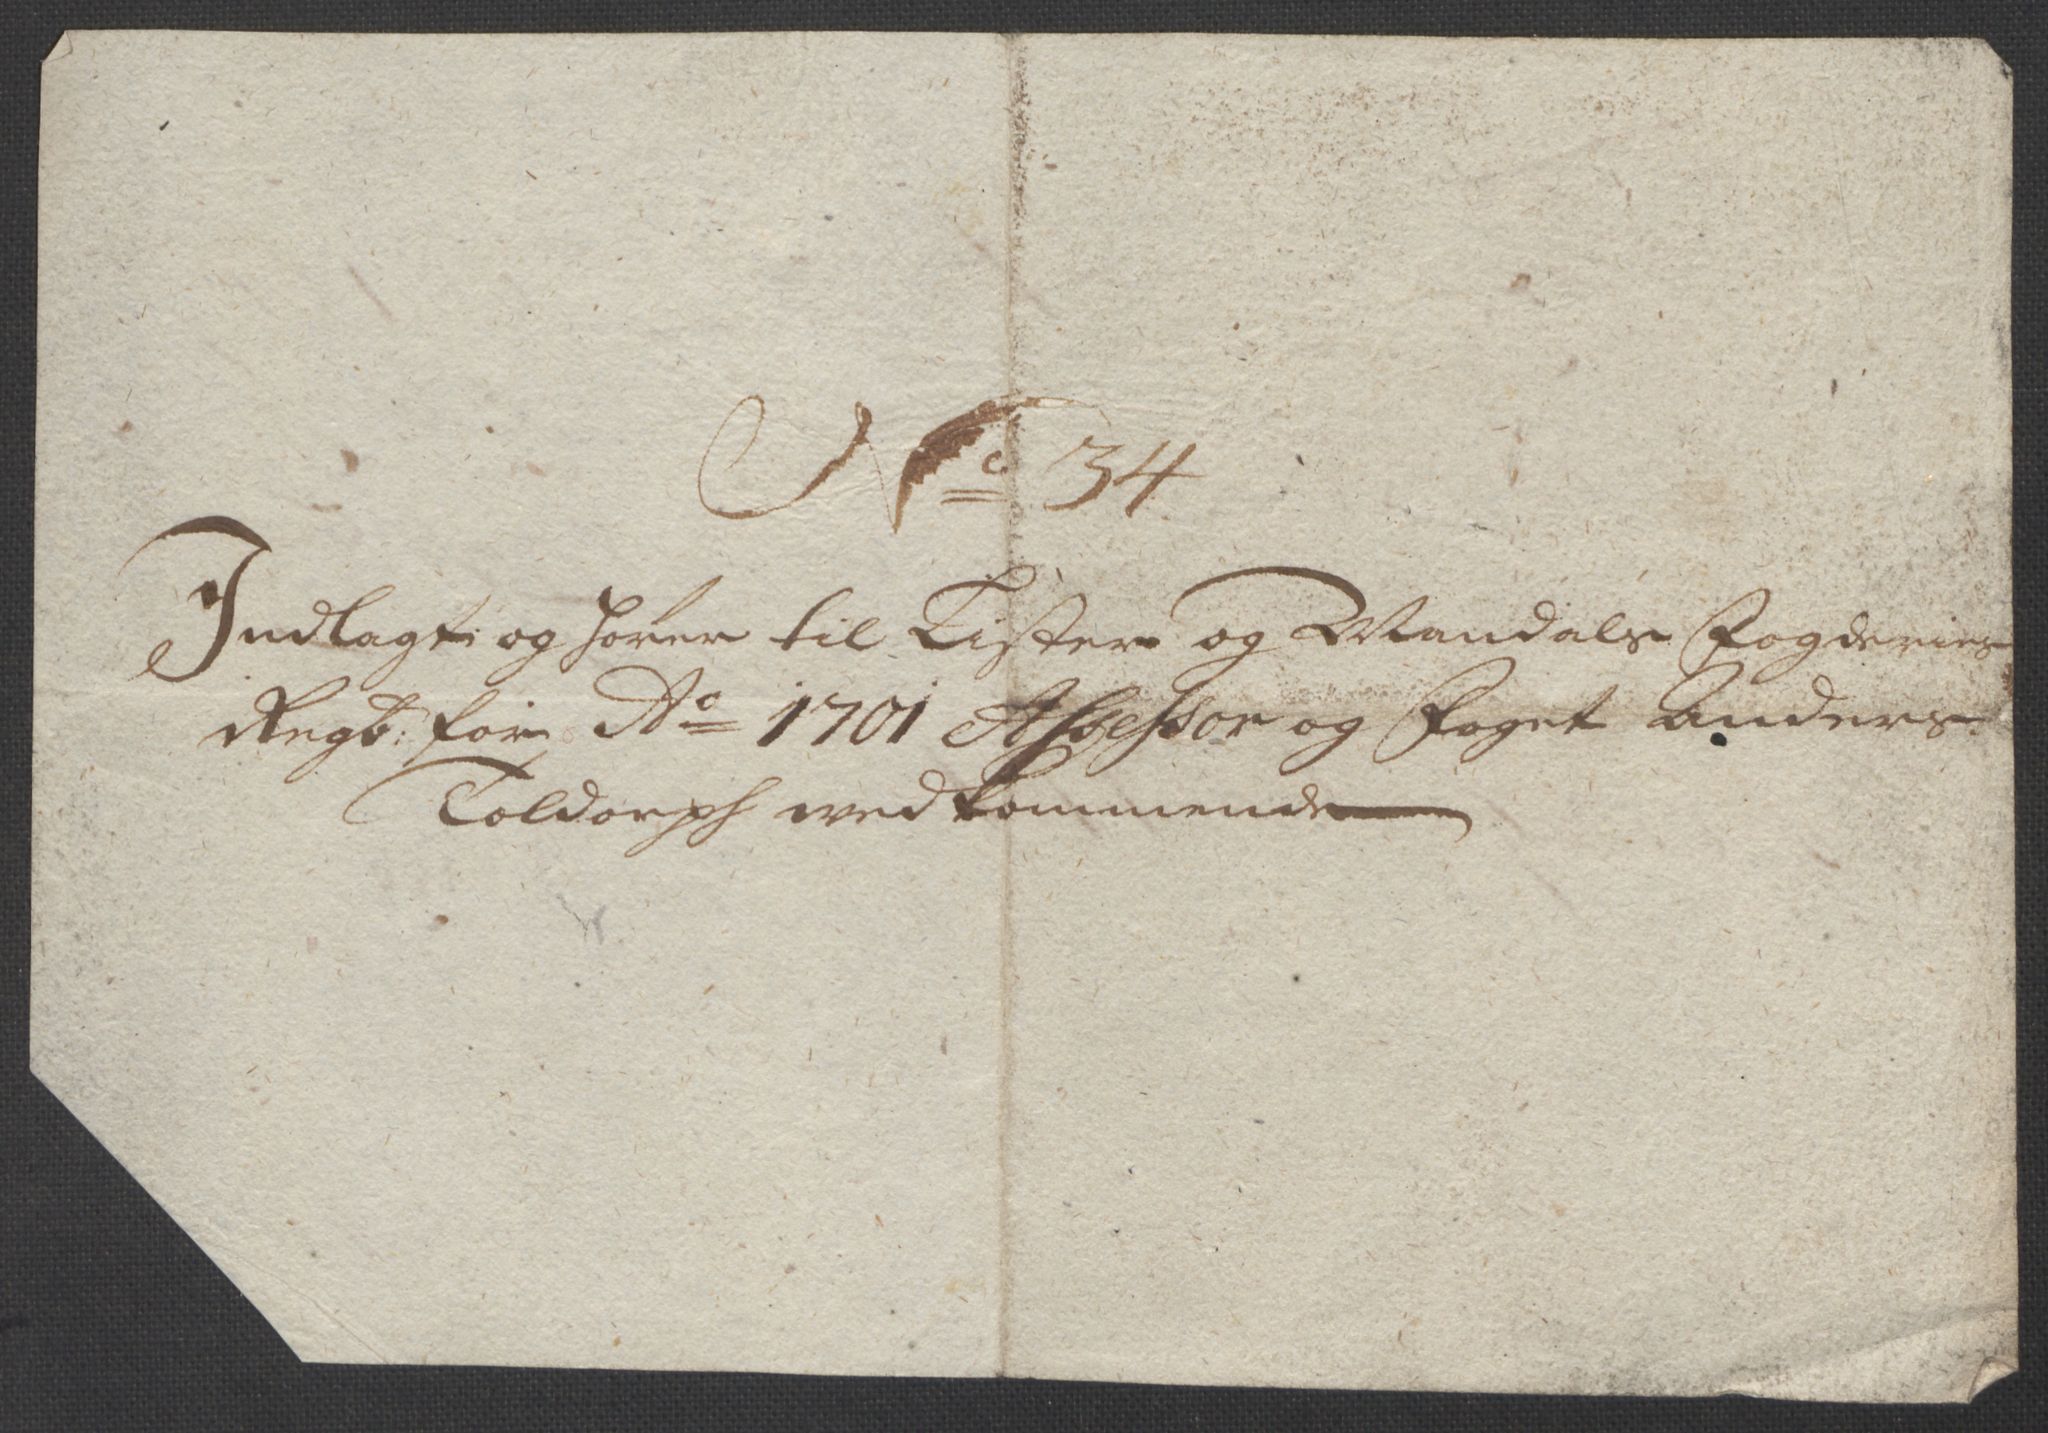 No 34
Indlagt og hører til Lister og Mandals Fogderies
Regb: for Ao 1701 Assessor og Foget Anders
Toldorph wedkommende